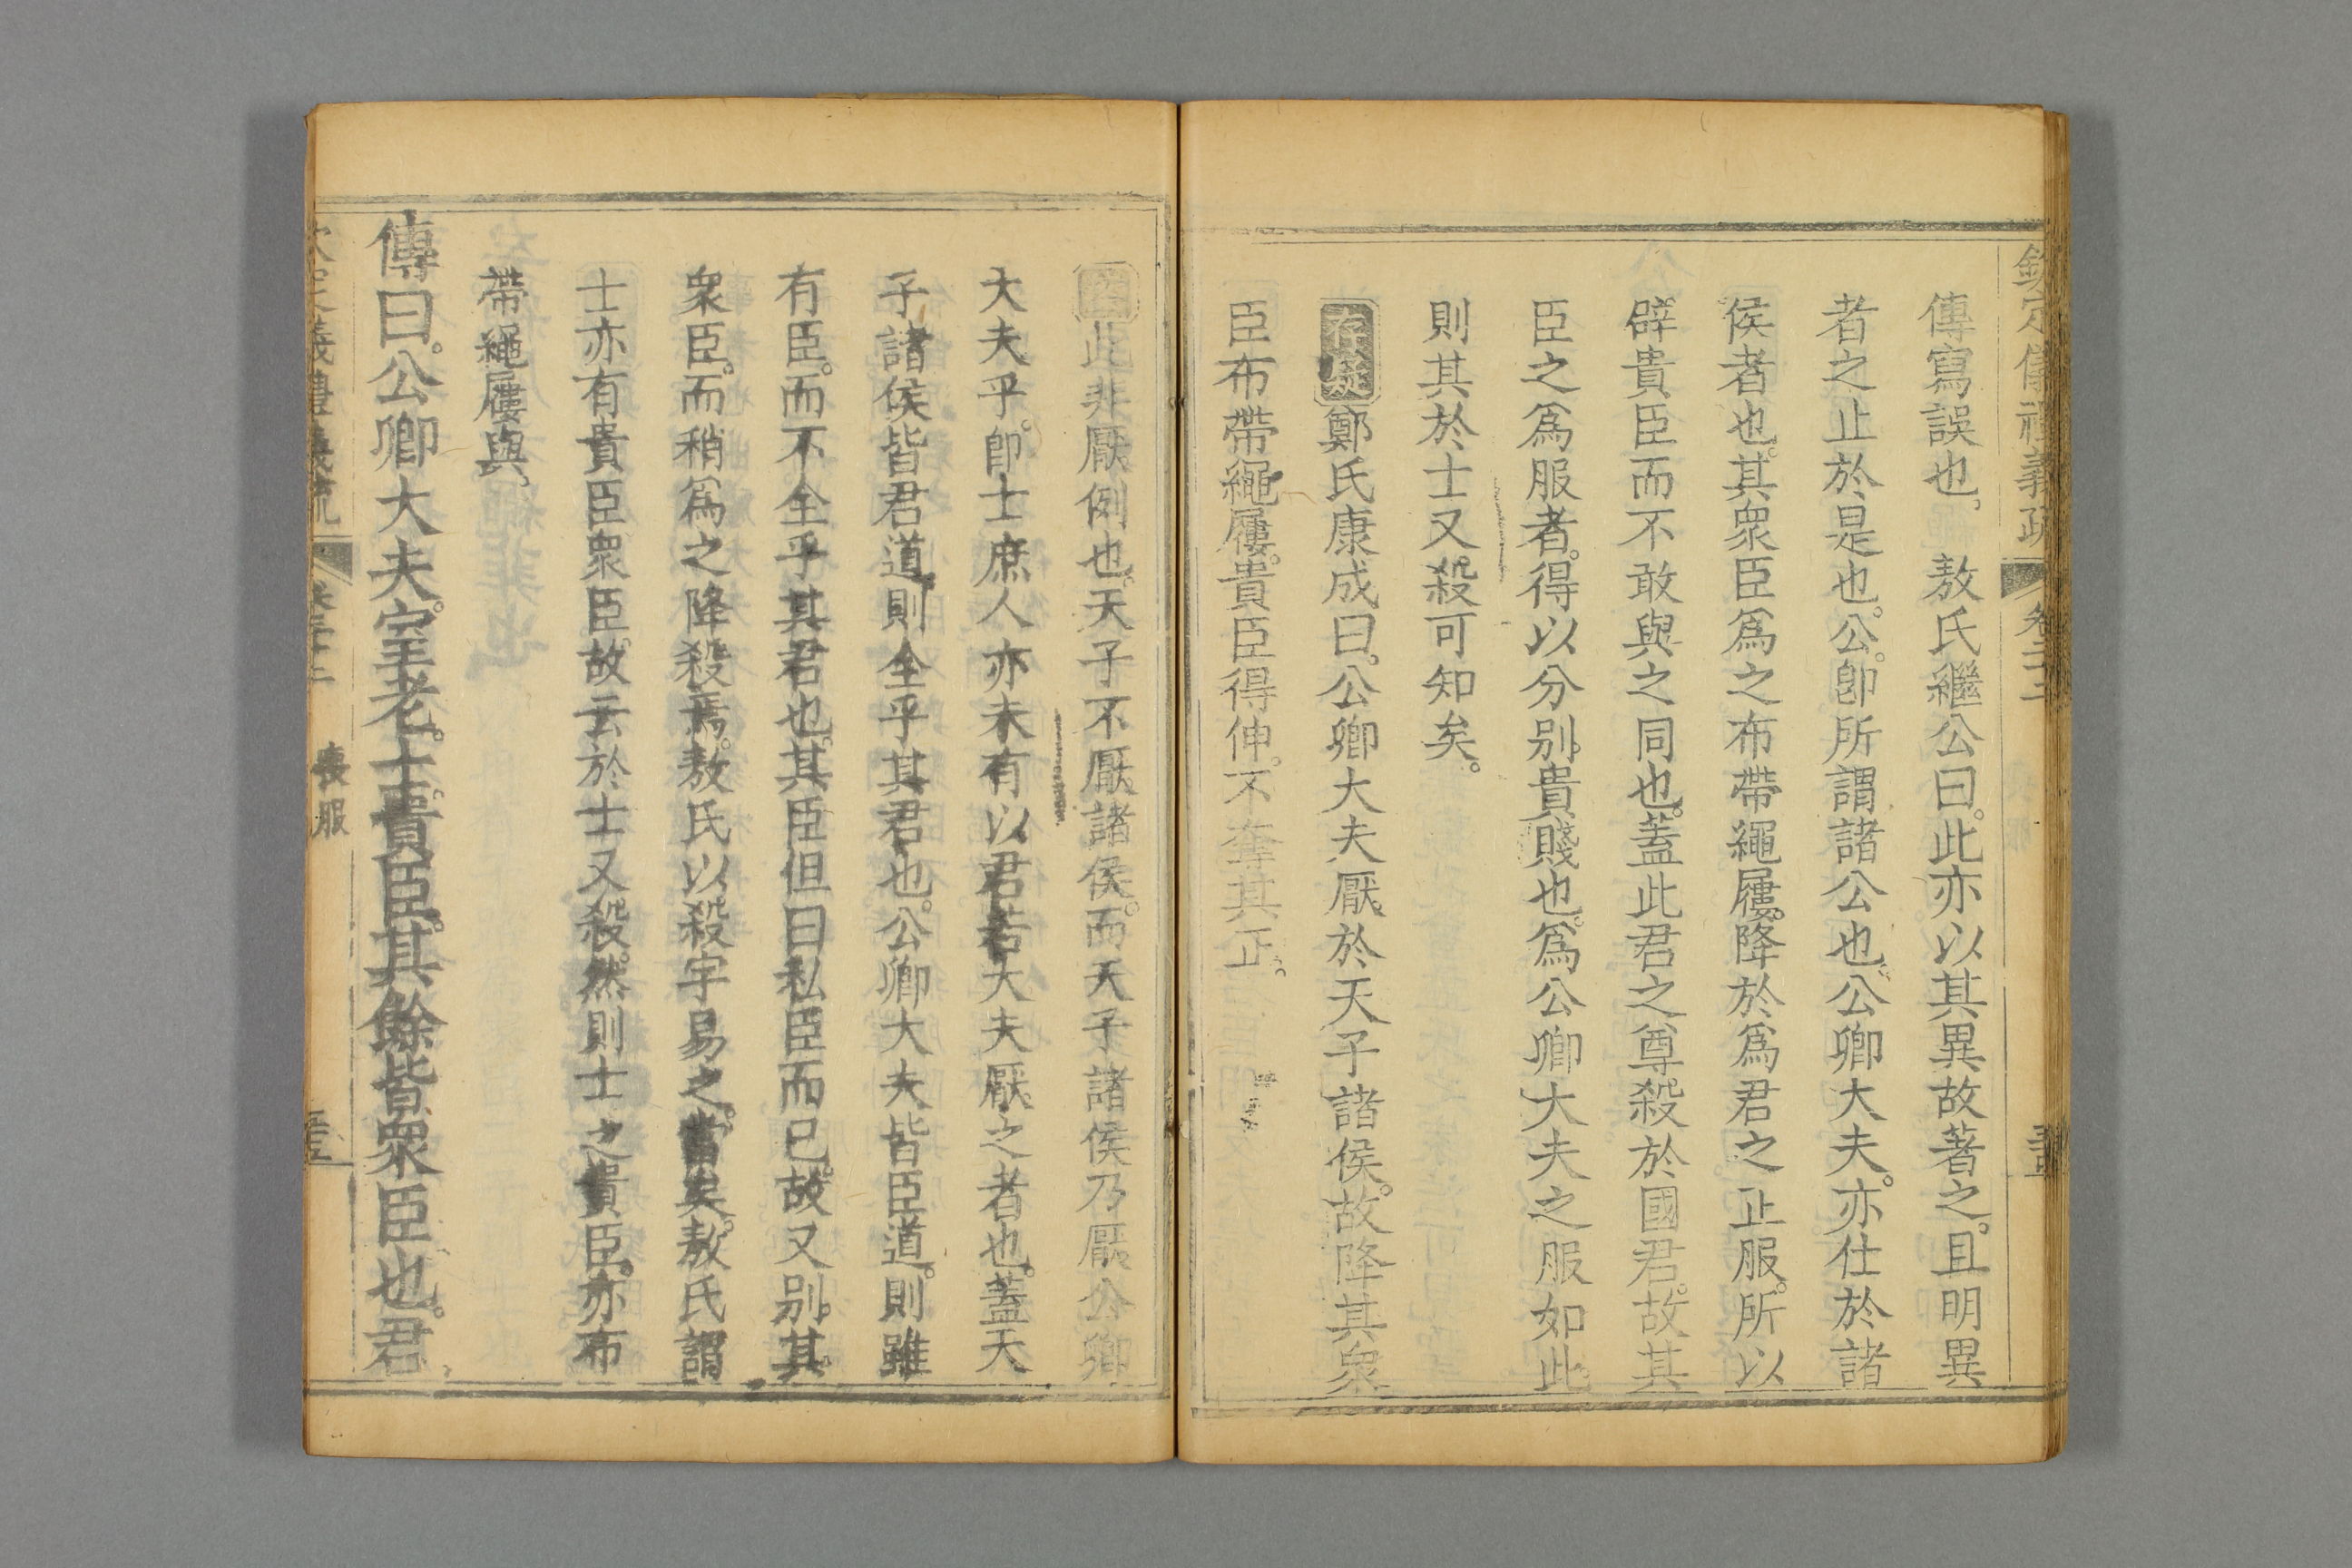 欽定儀禮義疏 卷二十二
傳寫誤也 敖氏繼公曰此亦以其異故著之且明異
者之止於是也公卽所謂諸公也公卿大夫亦仕於諸
侯者也其衆臣爲之布帶繩屨降於爲君之正服所以
辟貴臣而不敢與之同也蓋此君之尊殺於國君故其
臣之爲服者得以分別貴賤也爲公卿大夫之服如此
則其於士又殺可知矣
存疑鄭氏康成曰公卿大夫厭於天子諸侯故降其衆
臣布帶繩屨貴臣得伸不奪其正
此非厭例也天子不厭諸侯而天子諸侯乃厭公卿
大夫乎卽士庶人亦未有以君若大夫厭之者也蓋天
子諸侯皆君道則全乎其君也公卿大夫皆臣道則雖
有臣而不全乎其君也其臣但曰私臣而已故又別其
衆臣而稍爲之降殺焉敖氏以殺字易之當矣敖氏謂
士亦有貴臣衆臣故云於士又殺然則士之貴臣亦布
帶繩屨與
傳曰公卿大夫室老士貴臣其餘皆衆臣也君
欽定儀禮義疏 卷二十二 喪服